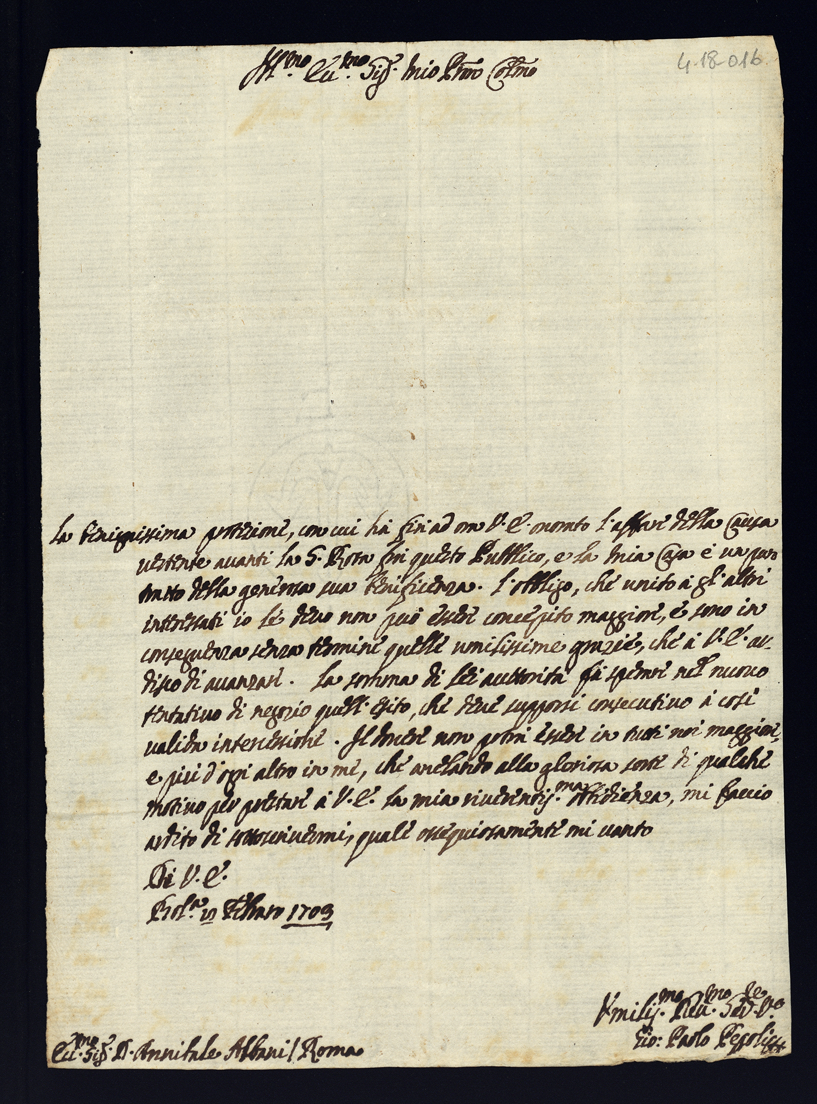 Ill.mo Ecc.mo Sig.r mio Pron Colmo
4-18-016
La benignissima protezione, con cui hà sin ad ora V. E. onorato l'affare della Causa
vertente avanti la S. Rota frà questo Pubblico, e la mia Casa è un puro
tratto della generosa sua beneficenza. L'obbligo, che unito à gl'altri
interessati io lé devo non può essere concepito maggiore, e sono in
conseguenza senza termine quelle umilissime grazie, che à V. E. ar-
disco di avanzare. La somma di Lei auttorità fà sperare nel nuovo
tentativo di negozio quell'esito, che deve supporsi consecutivo à così
valida intercessione. Il dovere non potrà essere in tutti noi maggiore,
e più d'ogni altro in me, che anelando alla gloriosa sorte di qualche
motivo per prestare à V. E. la mia riverentiss.ma Obbedienza, mi faccio
ardito di sottoscrivermi, quale ossequiosamente mi vanto
Di V. E.
Bol.a Febraro 1703
Umiliss.mo Dev.mo Ser.re
Gio: Paolo Pepoli
Ecc.mo Sig.r D. Annibale Albani / Roma